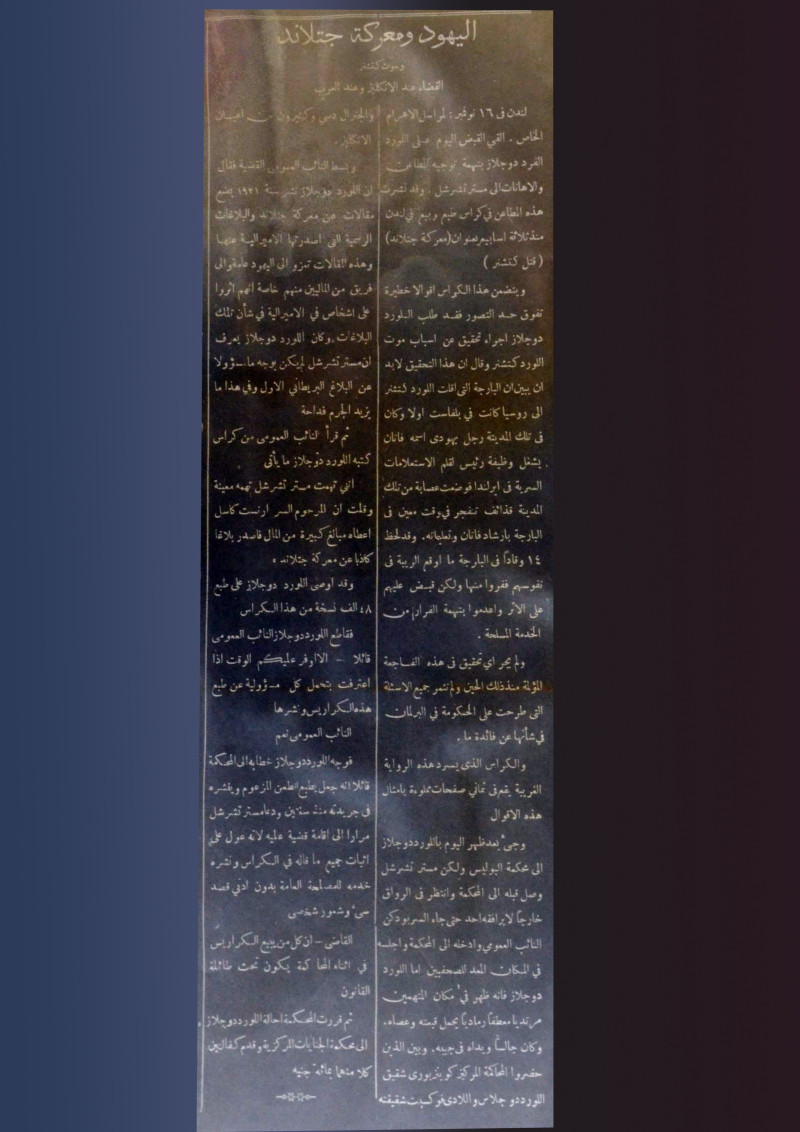 اليهود ومعركة جتلاند
وموت كتشنر
القضاء عند الانكليز وعند العرب
لندن فى ١٦ نوفمبر : لمراسل الاهرام
الخاص . القي القبض اليوم على اللورد
الفرد دوجلاز بتهمة توجيه المطاعن
والاهانات الى مستر تشرشل . وقد نشرت
هذه المطاعن في كراس طبع وبيع في لندن
منذ ثلاثة اسابيع بعنوان (معركة جتلاند)
( قتل كتشنر )
ويتضمن هذا الكراس اقوالا خطيرة
تفوق حد التصور فقد طلب اللورد
دوجلاز اجراء تحقيق عن اسباب موت
اللورد كتشنر وقال ان هذا التحقيق لابد
ان يبين ان البارجة التى اقلت اللورد كتشنر
الى روسيا كانت في بلفاست اولا وكان
فى تلك المدينة رجل يهودى اسمه فاتان
يشغل وظيفة رئيس لقلم الاستعلامات
السرية فى ايرلندا فوضعت عصابة من تلك
المدينة قذائف تنفجر في وقت معين فى
البارجة بارشاد فاتان وتعليماته . وقد لحظ
١٤ وقادًا فى البارجة ما اوقع الريبة فى
نفوسهم ففروا منها ولكن قبض عليهم
على الاثر واعدموا بتهمة الفرار من
الخدمة المسلحة .
ولم يجر اي تحقيق فى هذه الفاجعة
المؤلمة منذ ذلك الحين ولم تثمر جميع الاسئلة
التى طرحت على الحكومة في البرلمان
في شأنها عن فائدة ما .
والكراس الذى يسرد هذه الرواية
الغريبة يقع فى ثماني صفحات مملوءة بامثال
هذه الاقوال
وجىء بعد ظهر اليوم باللورد دوجلاز
الى محكمة البوليس ولكن مستر تشرشل
وصل قبله الى المحكمة وانتظر فى الرواق
خارجًا لا يرافقه احد حتى جاء السر بودكن
النائب العمومي وادخله الى المحكمة واجلسه
في المكان المعد للصحفيين اما اللورد
دوجلاز فانه ظهر في مكان المتهمين
مرتديا معطفا رماديا يحمل قبعته وعصاه .
وكان جالسًا ويداه فى جيبه . وبين الذين
حضروا المحاكمة المركيز كوينزبورى شقيق
اللورد دوجلاس واللادى فوكسبت شقيقته
والجنرال دسي وكثيرون من اعيان
الانكليز .
وبسط النائب العمومي القضية فقال
ان اللورد دوجلاز نشر سنة ١٩٢١ بضع
مقالات عن معركة جتلاند والبلاغات
الرسمية التى اصدرتها الاميرالية عنها
وهذه المقالات تعزو الى اليهود عامة والى
فريق من الماليين منهم خاصة انهم اثروا
على اشخاص في الاميرالية في شأن تلك
البلاغات . وكان اللورد دوجلاز يعرف
ان مستر تشرشل لم يكن بوجه ما مسؤولا
عن البلاغ البريطاني الاول وفي هذا ما
يزيد الجرم فداحة
ثم قرأ النائب العمومى من كراس
كتبه اللورد دوجلاز ما يأتى
انني تهمت مستر تشرشل تهمه معينة
وقلت ان المرحوم السر ارنست كاسل
اعطاه مبالغ كبيرة من المال فاصدر بلاغا
كاذبا عن معركة جتلاند ه
وقد اوصى اللورد دوجلاز على طبع
٤٨ الف نسخة من هذا الكراس
فقاطع اللورد دوجلاز النائب العمومى
قائلا – الا اوفر عليكم الوقت اذا
اعترفت بتحمل كل مسؤولية عن طبع
هذه الكراريس ونشرها
النائب العمومى نعم
فوجه اللورد دوجلاز خطابه الى المحكمة
قائلا انه جعل يطبع الطعن المزعوم وينشره
فى جريدته منذ سنتين ودعا مستر تشرشل
مرارا الى اقامة قضية عليه لانه عول على
اثبات جميع ما قاله في الكراس ونشره
خدمه للمصلحة العامة بدون ادني قصد
سىء وشعور شخصى
القاضى – ان كل من يبيع الكراريس
في اثناء المحاكمة يكون تحت طائلة
القانون
ثم قررت المحكمة احالة اللورد دوجلاز
الى محكمة الجنايات المركزية وقدم كفالتين
كلا منهما بمائة جنيه